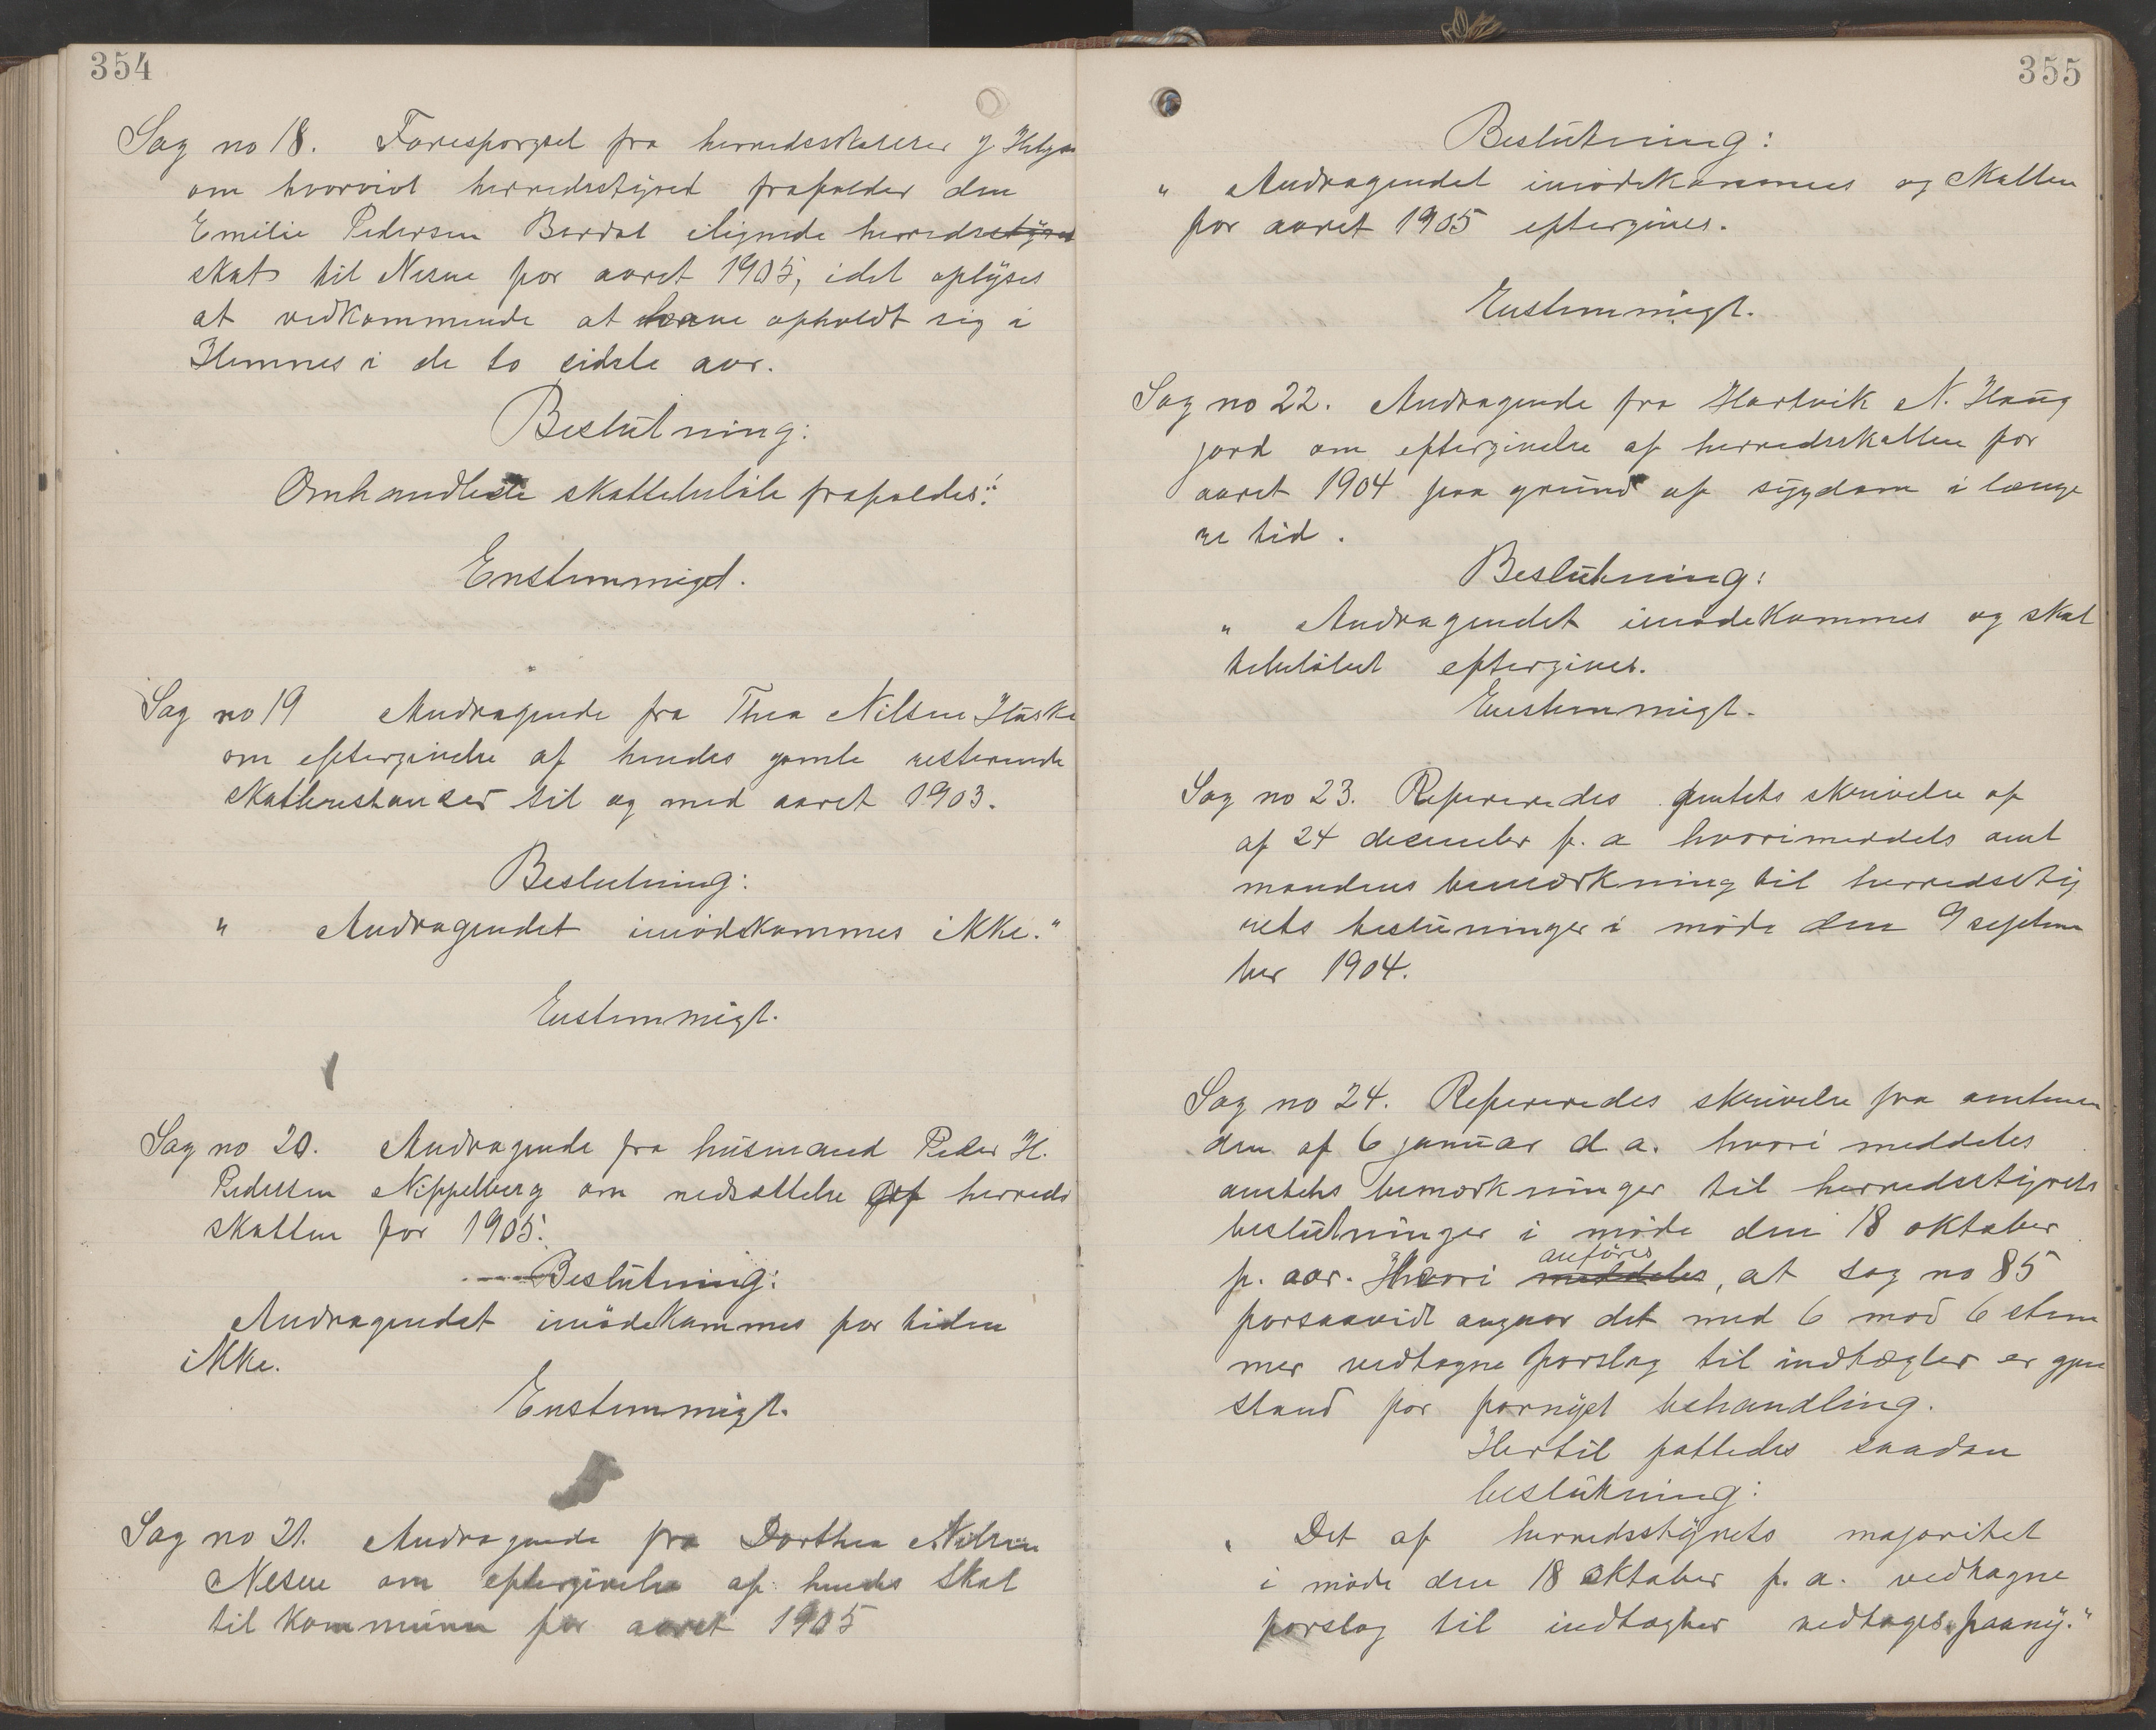 354
Sag no 18. Forespørgsel fra herredskasserer J Helga
om hvorvidt herredsstyret frafalder den
Emilie Pedersen Bardal ilignede herredsstyret
skat til Nesne for aaret 1905, idet oplyses
at vedkommende at have opholdt sig i
Hemnes i de to sidste aar.
Beslutning:
Omhandlede skattebeløb frafaldes."
Enstemmigt.
Sag no 19 Andragende fra Thea Nilsen Huske
om eftergivelse af hendes gamle resterende
skatterestanser til og med aaret 1903.
Beslutning:
" Andragendet imødekommes ikke."
Enstemmigt.
Sag no 20. Andragende fra husmand Peder H.
Pedersen Nippelberg om nedsættelse af herreds
skatten for 1905.
Beslutning:
Andragendet imødekommes for tiden
ikke.
Enstemmigt.
Sag no 21. Andragende fra Dorthea Nilsen
Nesne om eftergivelse af hendes skat
til kommunen for aaret 1905
355
Beslutning:
" Andragendet imødekommes og skatten
for aaret 1905 eftergives.
Enstemmigt.
Sag no 22. Andragende fra Hartvik N. Haug
jord om eftergivelse af herredsskatten for
aaret 1904 paa grund af sygdom i længe
re tid.
Beslutning:
" Andragendet imødekommes og skat
tebeløbet eftergives.
Enstemmigt.
Sag no 23. Refereredes amtets skrivelse af
af 24 december f. a hvorimeddels amt
mandens bemærkning til herredssty
rets besluninger i møde den 9 septem
ber 1904.
Sag no 24. Refereredes skrivelse fra amtman
den af 6 januar d. a. hvori meddeles
amtets bemærkninger til herredsstyrets
beslutninger i møde den 18 oktober
anføres
f. aar. Hvori meddeles, at sag no 85
forsaavidt angaar det med 6 mod 6 stem
mer vedtagne forslag til indtægter er gjen
stand for fornyet behandling.
Hertil fattedes saadan
beslutning:
" Det af herredsstyrets majoritet
i møde den 18 oktober f. a. vedtagne
forslag til indtægter vedtages paany."